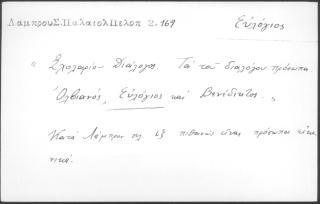 Λαμπρου Σ. Παλαιολ Πελοπ 2.169
Εὐλόγιος
"Σχολαρίου Διάλογος. Τὰ τοῦ διαλόγου πρόσωπα
Ὀλβιανός, Εὐλόγιος καὶ Βενέδικτος."
Κατὰ Λάμπρον σελ. ιξ πιθανῶς εἶναι πρόσωπα